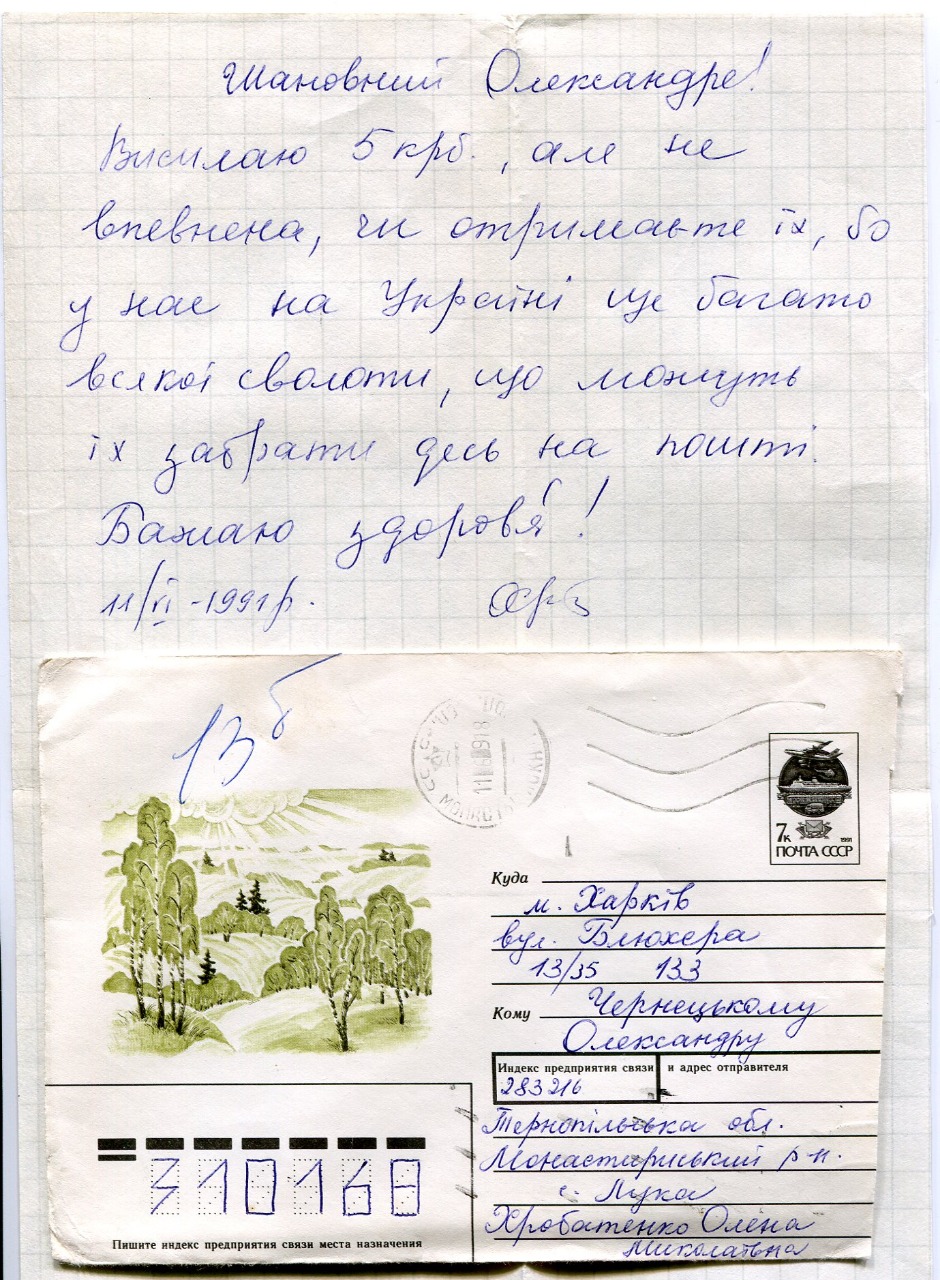 Шановний Олександре!
Висилаю 5 крб., але не
впевнена, чи отримаєте їх, бо
у нас на Україні ще багато
всякої сволоти, що можуть
їх забрати десь на пошті.
Бажаю здоров'я!
11/VI-1991р.
13б
7к
1991
ПОЧТА СССР
Куда
м. Харків
вул. Блюхера
13/35 133
Кому Чернецькому
Олександру
Индекс предприятия связи и адрес отправителя
283216
Тернопільська обл.
Монастириський р-н.
с. Лука
Хробатенко Олена
Миколаївна
310168
Пишите индекс предприятия связи места назначения